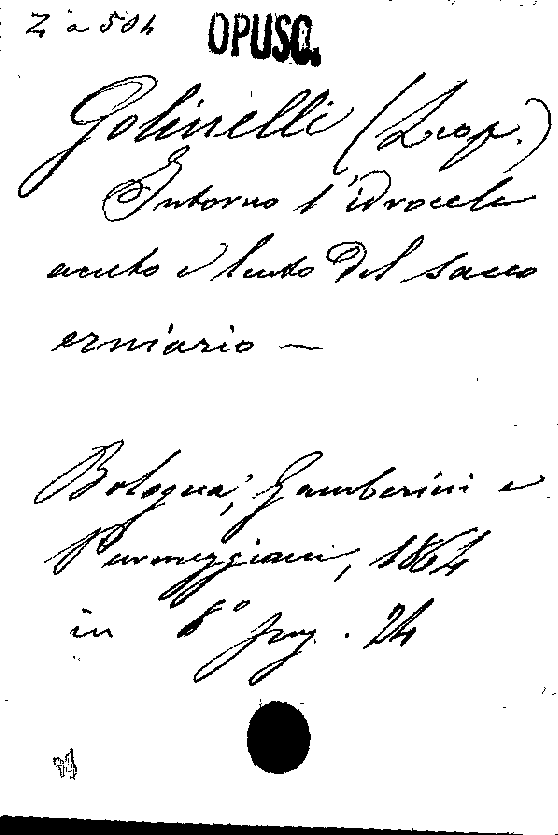 Z a 504 OPUSC.
Golinelli (Leop.)
Intorno l'idrocele
acuto e lento del sacco
erniario —
Bologna, Gamberini e
Parmeggiani, 1864
in 8° pag. 24